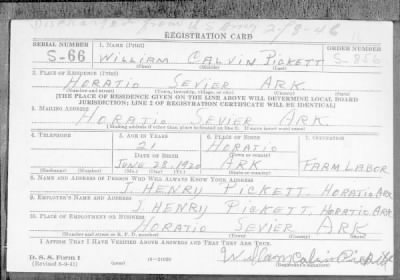 Discharged from US Army 2/8-46
REGISTRATION CARD
SERIAL NUMBER 1. NAME (Print) ORDER NUMBER
S-66 WILLIAM CALVIN PICKETT S-856
(First) (Middle) (Last)
2. PLACE OF RESIDENCE (Print)
HORATIO SEVIER ARK.
(Number and street) (Town, township, village, or city) (County) (State)
[THE PLACE OF RESIDENCE GIVEN ON THE LINE ABOVE WILL DETERMINE LOCAL BOARD
JURISDICTION; LINE 2 OF REGISTRATION CERTIFICATE WILL BE IDENTICAL]
3. MAILING ADDRESS
HORATIO SEVIER ARK.
[Mailing address if other than place indicated on line 2. If same insert word same]
4. TELEPHONE 5. AGE IN YEARS 6. PLACE OF BIRTH 7. OCCUPATION
21 HORATIO
DATE OF BIRTH (Town or county)
JUNE 1920 ARK FARM LABOR
(Exchange) (Number) (Mo.) (Day) (Yr.) (State or country)
8. NAME AND ADDRESS OF PERSON WHO WILL ALWAYS KNOW YOUR ADDRESS
J. HENRY PICKETT, HORATIO ARK
9. EMPLOYER'S NAME AND ADDRESS
J. HENRY PICKETT, HORATIO ARK
10. PLACE OF EMPLOYMENT OR BUSINESS
HORATIO SEVIER ARK
(Number and street or R. F. D. number) (Town) (County) (State)
I AFFIRM THAT I HAVE VERIFIED ABOVE ANSWERS AND THAT THEY ARE TRUE.
D. S. S. Form 1
(Revised 6-9-41) (over) 16-21029 William Calvin Pickett
(Registrant's signature)